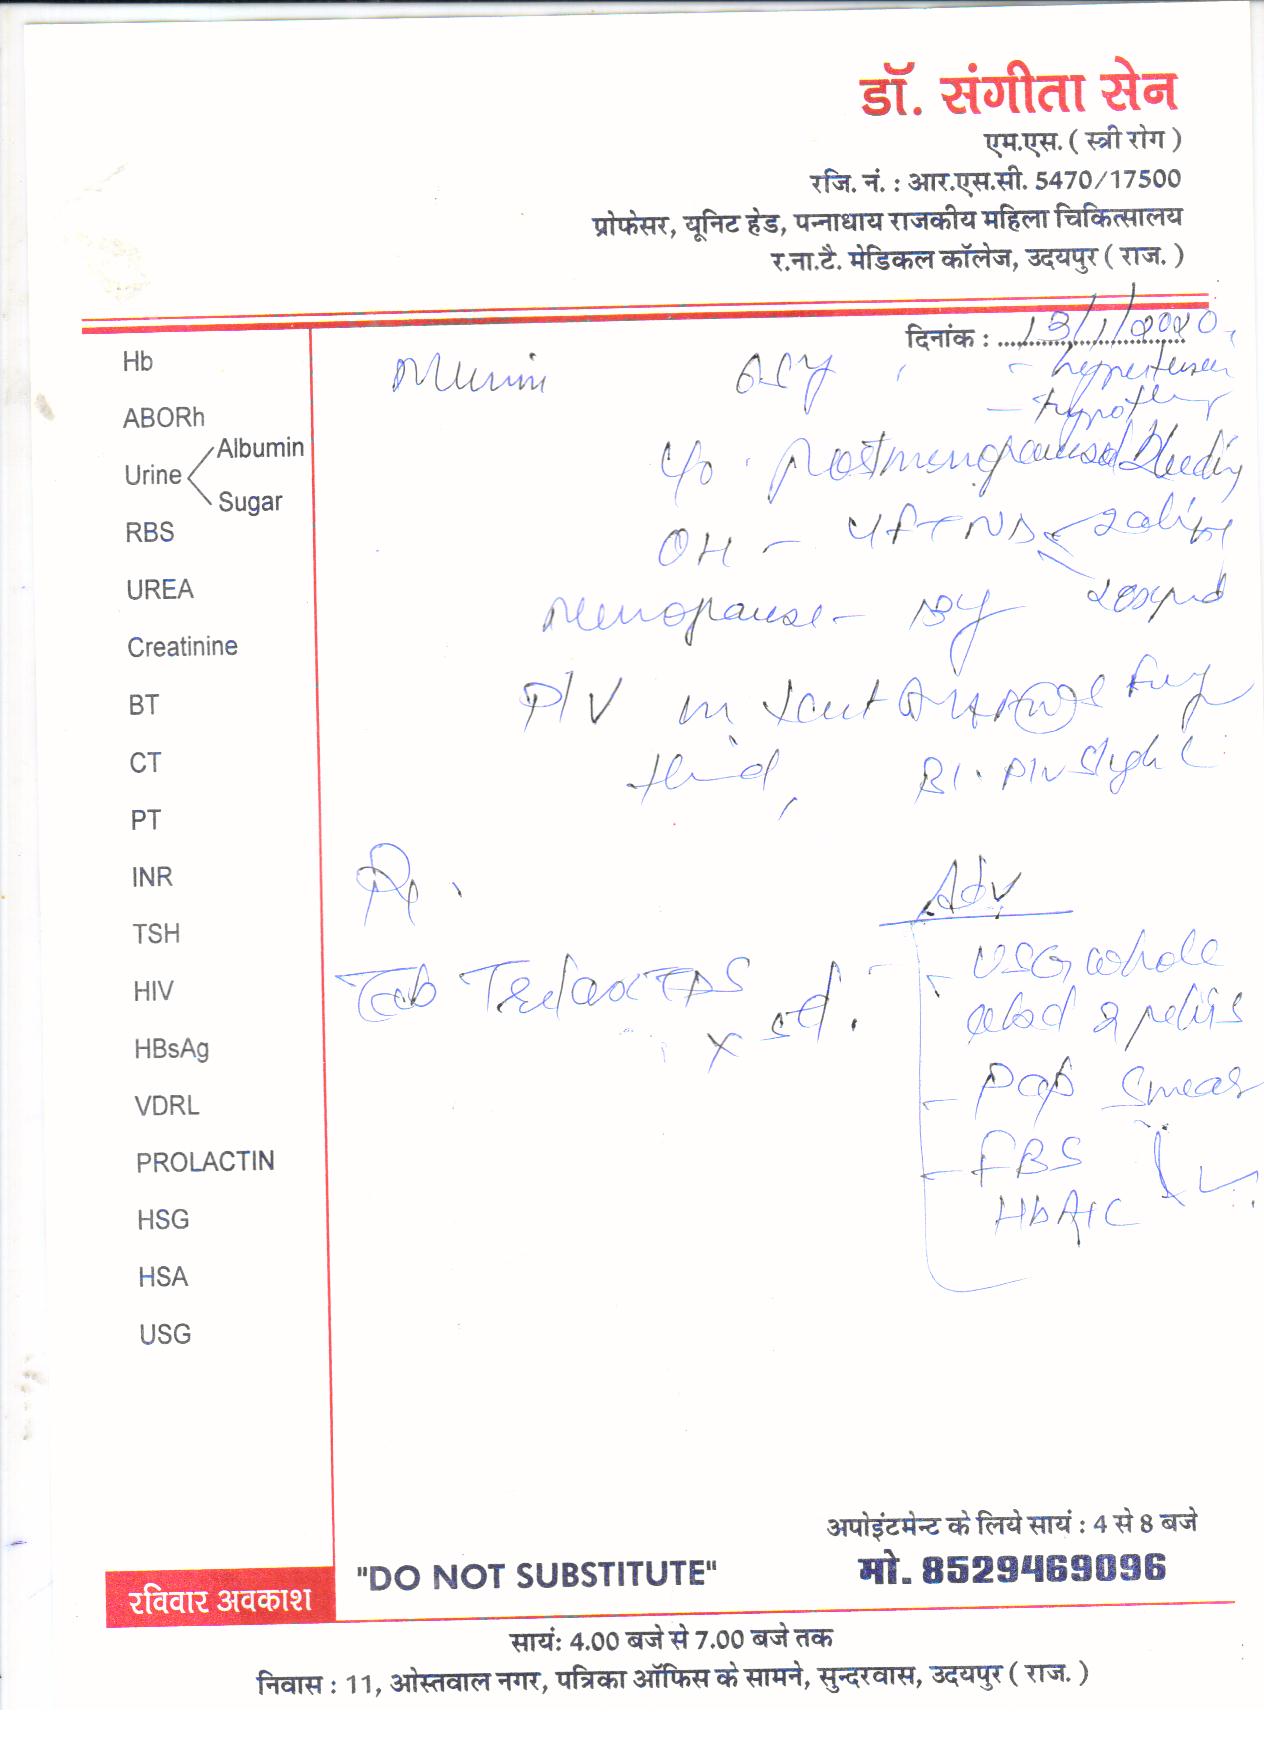 डॉ. संगीता सेन
एम.एस. ( स्त्री रोग )
रजि. नं. : आर.एस.सी. 5470/17500
प्रोफेसर, यूनिट हेड, पन्नाधाय राजकीय महिला चिकित्सालय
र.ना.टै. मेडिकल कॉलेज, उदयपुर ( राज. )
दिनांक : 13/1/2020
Hb
ABORh
Urine
Albumin
Sugar
RBS
UREA
Creatinine
BT
CT
PT
INR
TSH
HIV
HBsAg
VDRL
PROLACTIN
HSG
HSA
USG
c/o. postmenopausal bleeding
OH - 4 FTND
Menopause -
P/V
Rx.
Tab
Adv
- USG whole
abd & pelvis
- Pap Smear
- FBS
HbA1C
अपोइंटमेन्ट के लिये सायं : 4 से 8 बजे
"DO NOT SUBSTITUTE"
मो. 8529469096
रविवार अवकाश
सायं: 4.00 बजे से 7.00 बजे तक
निवास : 11, ओस्तवाल नगर, पत्रिका ऑफिस के सामने, सुन्दरवास, उदयपुर ( राज. )